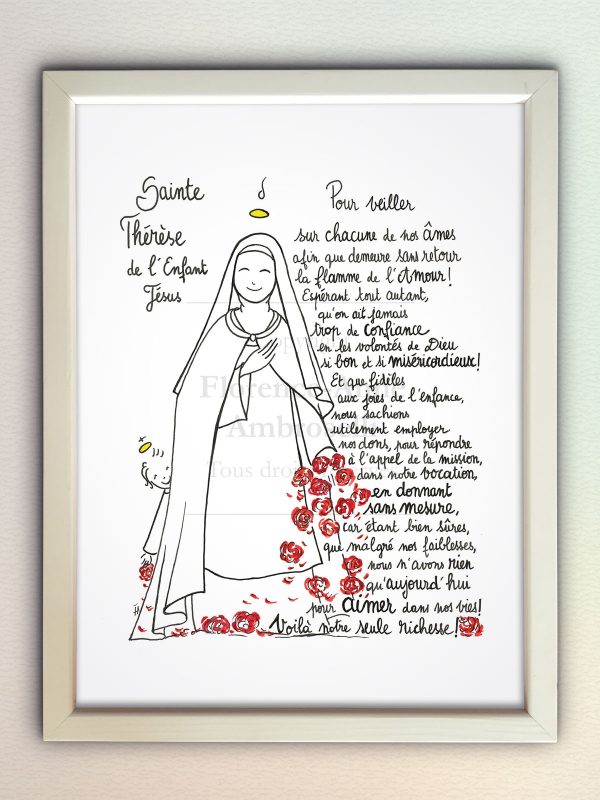 Sainte
Thérèse
de l'Enfant
Jésus
Ô
Pour veiller
sur chacune de nos âmes
afin que demeure sans retour
la flamme de l'Amour!
Espérant tout autant,
qu'on ait jamais
trop de confiance
en les volontés de Dieu
si bon et si miséricordieux!
Et que fidèles
aux joies de l'enfance,
nous sachions
utilement employer
nos dons, pour répondre
à l'appel de la mission,
dans notre vocation,
en donnant
sans mesure,
car étant bien sûres,
que malgré nos faiblesses,
nous n'avons rien
qu'aujourd'hui
pour aimer dans nos vies!
Voilà notre seule richesse!
Florence
Ambro
Tous dro